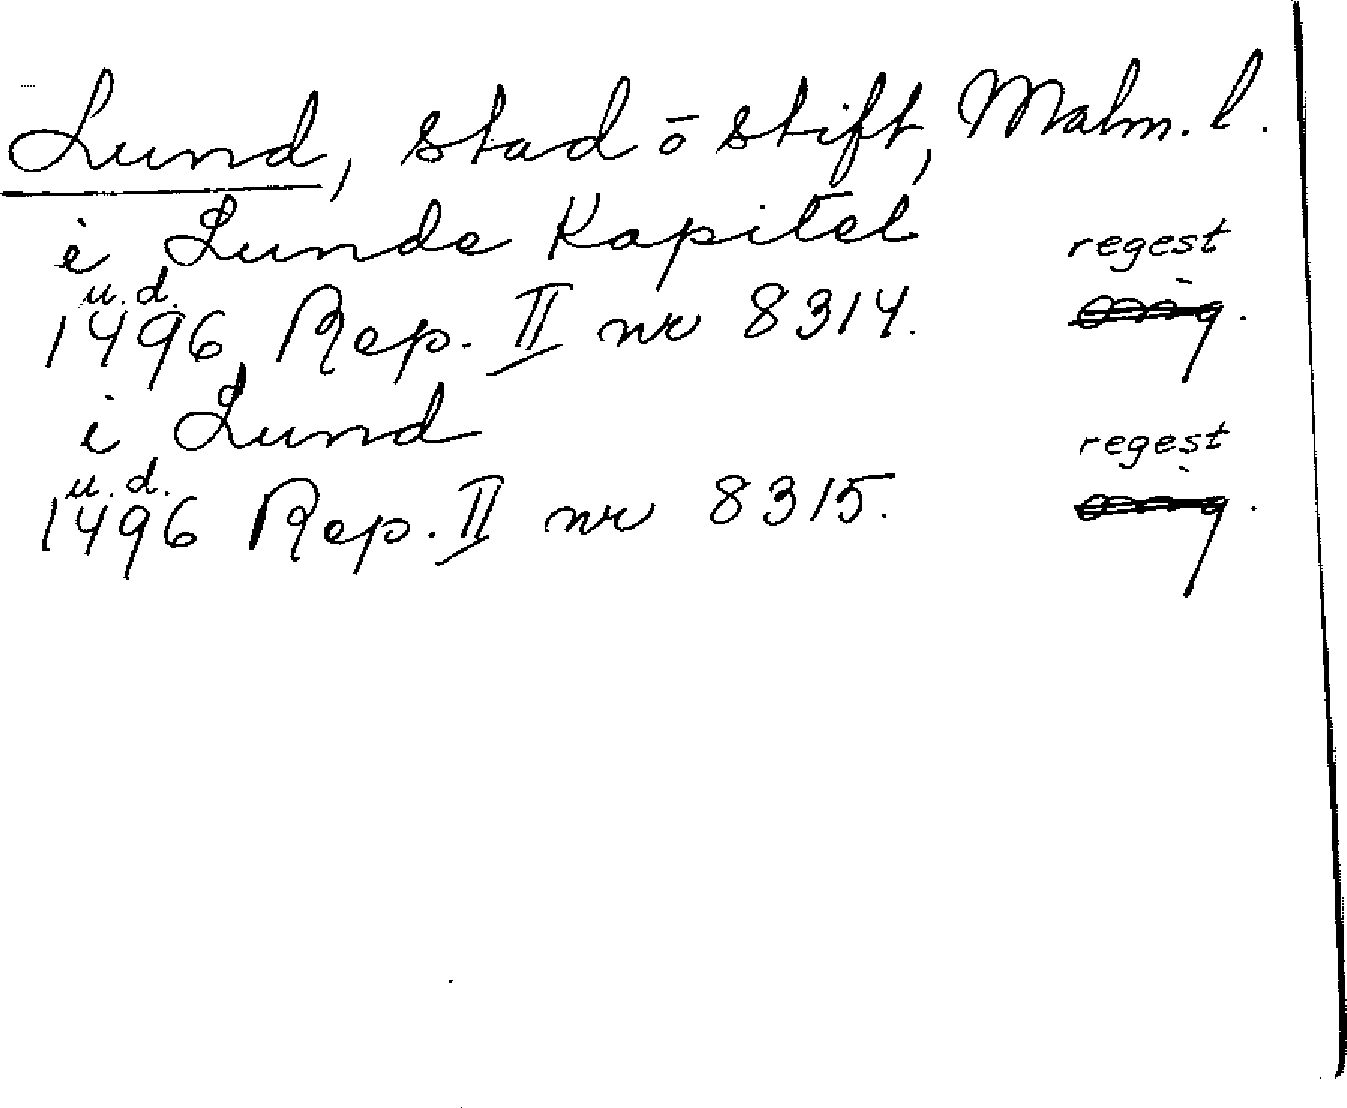 Lund, stad ō stift, Malm. l.
i Lunde Kapitel regest
u. d.
1496 Rep. II nr 8314.
i Lund regest
u. d.
1496 Rep. II nr 8315.